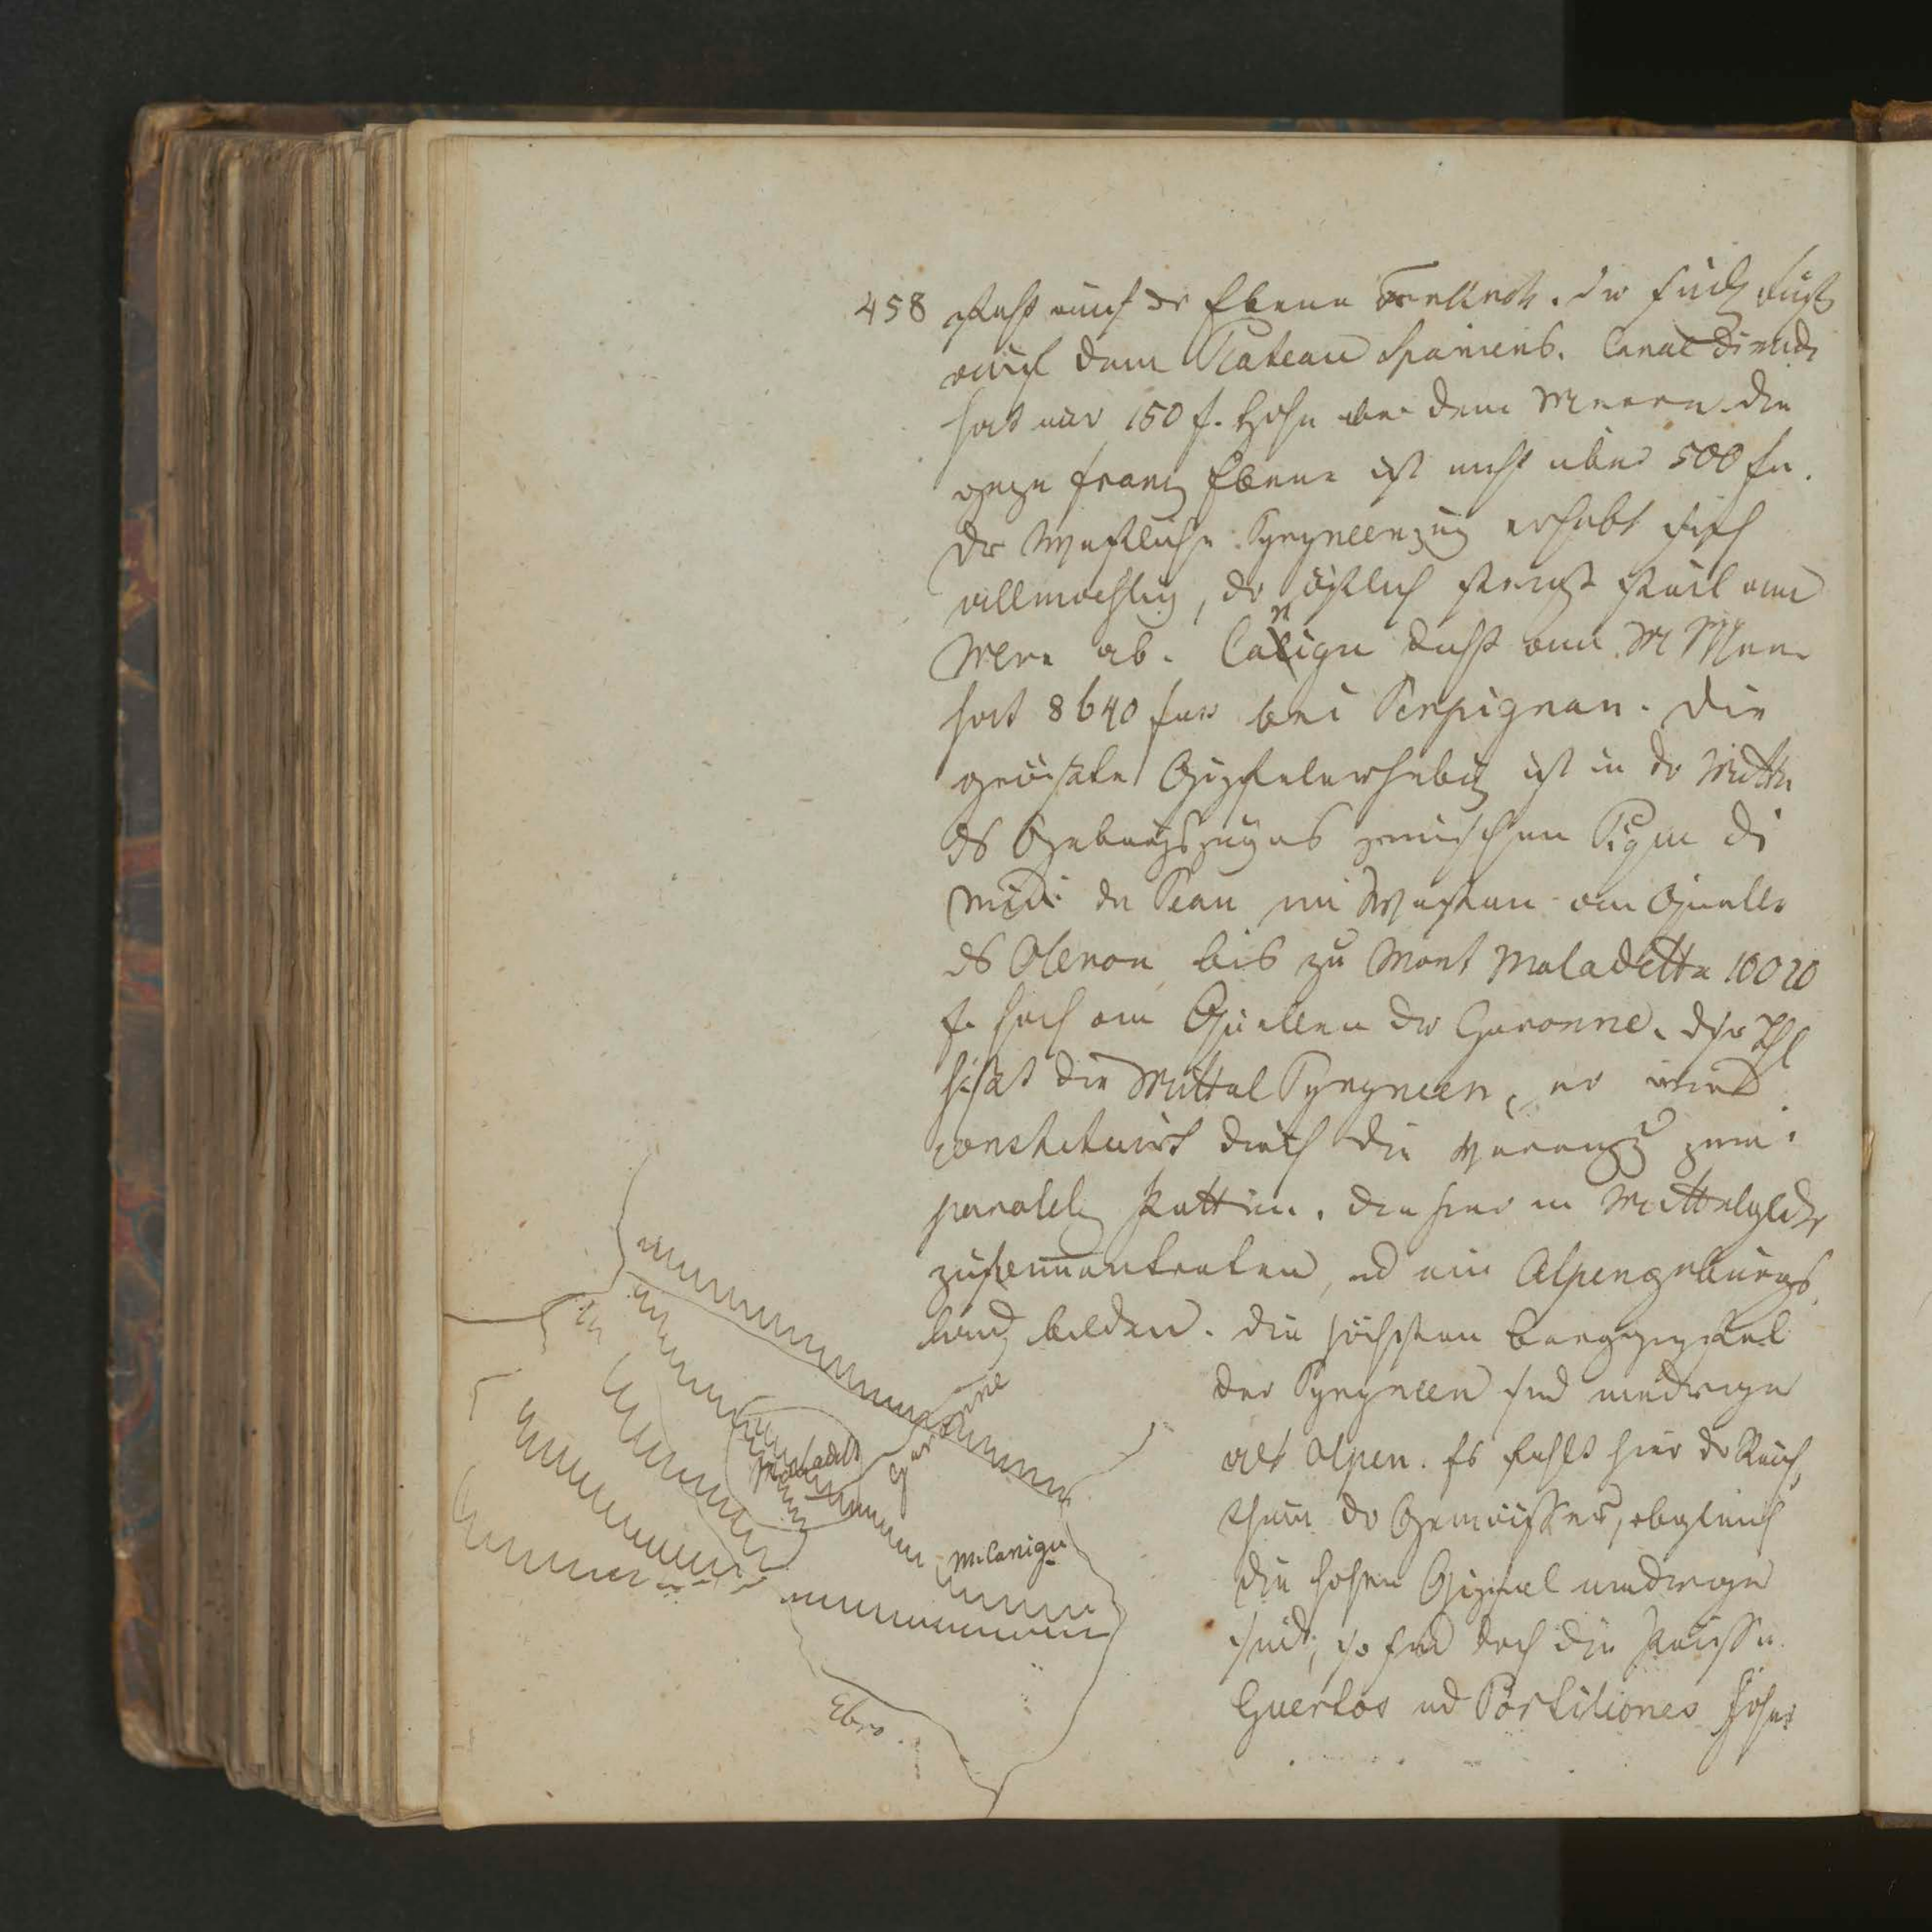 458 steht auf der Ebene Frankreichs. der südl. Fuß
auf dem Plateau Spaniens. Canal du midi
hat nur 150 f. Höhe über dem Meere die
ganze franz Ebene ist nicht über 500 fu.
Der Westliche Pyryneenzug erhebt sich
allmaehlig, der östlich steigt steil am
Mere ab. Canigu dicht am M Meer
hat 8640 fus bei Perpignan. Die
größte Gipfelerhebug ist in der Mitte
ds Gebirgszuges zwischen Pique di
midi de Peau im Westen am Quelle
ds Oleron bis zu Mont Maladetta 10020
f. hoch am Quellen der Garonne. dser Thl
heißt die Mittel Pyryneen, er wird
constituirt durch die
parallele Ketten. die hier in Mittelglieder
zusammentreten, ud ein Alpengebirgs
land bilden. Die höchsten Berggipfel
der Pyryneen sind niedriger
als Alpen. Es fehlt hier der Reich
thum der Gewässer, obgleich
die hohen Gipfel niedriger
sind, so sind doch die Pässe
Puertos ud Portiliones höher
Garonne
Maladetta
M Canigu
Ebro